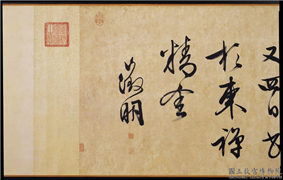 又四日書
於東禪
精舍
徵明
國立故宮博物院